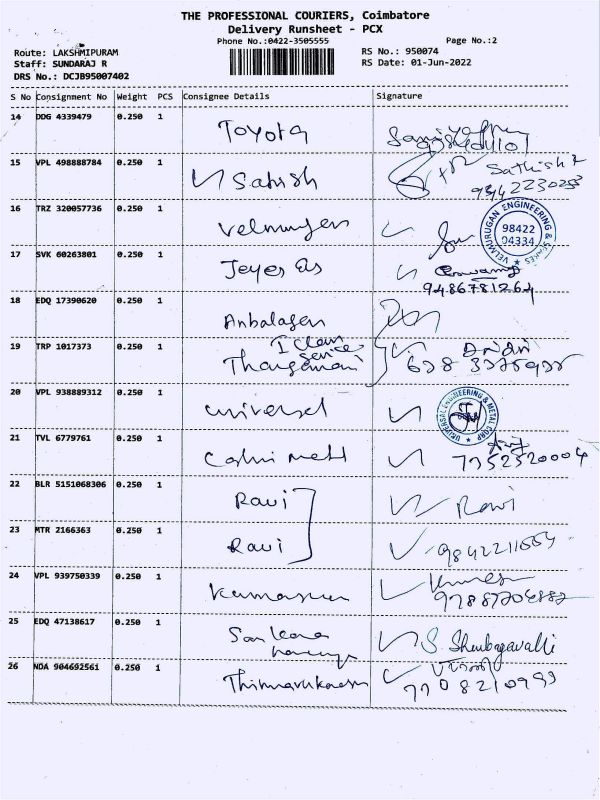 THE PROFESSIONAL COURIERS, Coimbatore
Delivery Runsheet - PCX
Phone No.:0422-3505555
Page No.:2
Route: LAKSHMIPURAM
RS No.: 950074
Staff: SUNDARAJ R
RS Date: 01-Jun-2022
DRS No.: DCJB95007402
S No Consignment No Weight PCS Consignee Details Signature
14 DDG 4339479 0.250 1 Toyota
15 VPL 498888784 0.250 1 Satish Sathish
16 TRZ 320057736 0.250 1 Velmurugan
VELMURUGAN ENGINEERING &
98422
04334
17 SVK 60263801 0.250 1
9486781264
18 EDQ 17390620 0.250 1 Anbalagan
19 TRP 1017373 0.250 1 I Clean
Service
Thangamani
20 VPL 938889312 0.250 1 Universal
UNIVERSAL ENGINEERING & METAL CORP
21 TVL 6779761 0.250 1
7352320004
22 BLR 5151068306 0.250 1 Ravi Ravi
23 MTR 2166363 0.250 1 Ravi
24 VPL 939750339 0.250 1
25 EDQ 47138617 0.250 1 S. Shenbagavalli
26 NDA 904692561 0.250 1